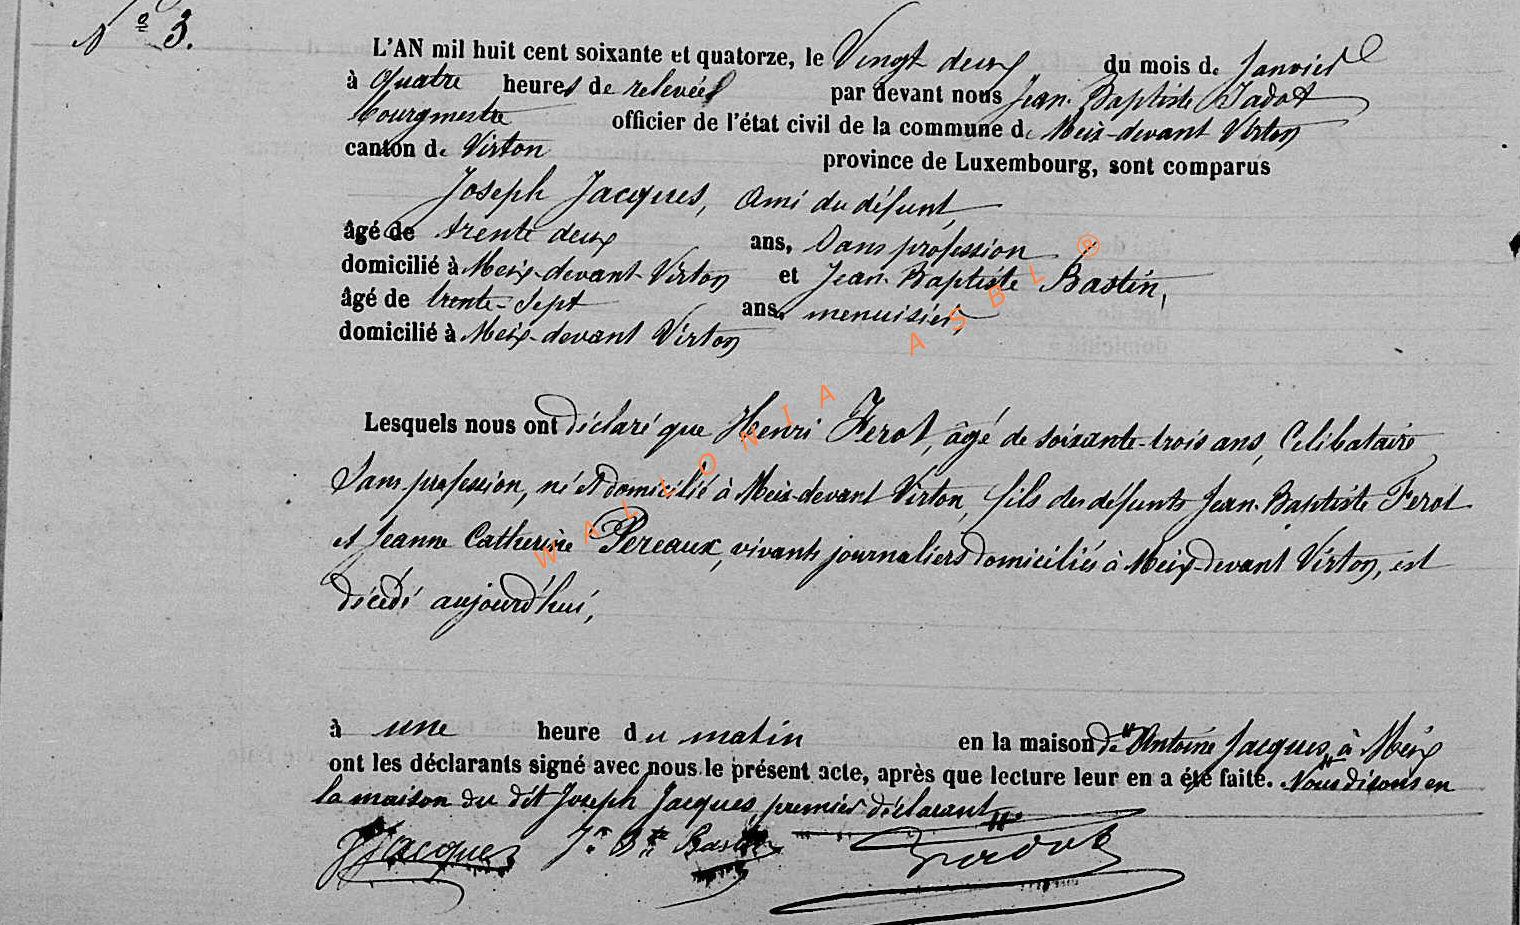 N° 3.
L'AN mil huit cent soixante et quatorze, le Vingt deux du mois de Janvier
à quatre heures de relevée par devant nous Jean-Baptiste Jadot
bourgmestre officier de l'état civil de la commune de Meix-devant Virton
canton de Virton province de Luxembourg, sont comparus
Joseph Jacques, ami du défunt,
âgé de trente deux ans, sans profession
domicilié à Meix-devant-Virton et Jean-Baptiste Bastin,
âgé de trente-sept ans, menuisier,
domicilié à Meix-devant Virton
Lesquels nous ont déclaré que Henri Ferot, âgé de soixante-trois ans, Celibataire
sans profession, né et domicilié à Meix-devant Virton, fils des défunts Jean-Baptiste Ferot
et Jeanne Catherine Pereaux, vivants journaliers domiciliés à Meix-devant Virton, est
décédé aujourd'hui,
à une heure du matin en la maison de "Antoine Jacques, à Meix
ont les déclarants signé avec nous le présent acte, après que lecture leur en a été faite. "Nous disons en
la maison du dit Joseph Jacques, premier déclarant".
JJacques Jn Bte Bastin Jadot
WALLONIA ASBL ®